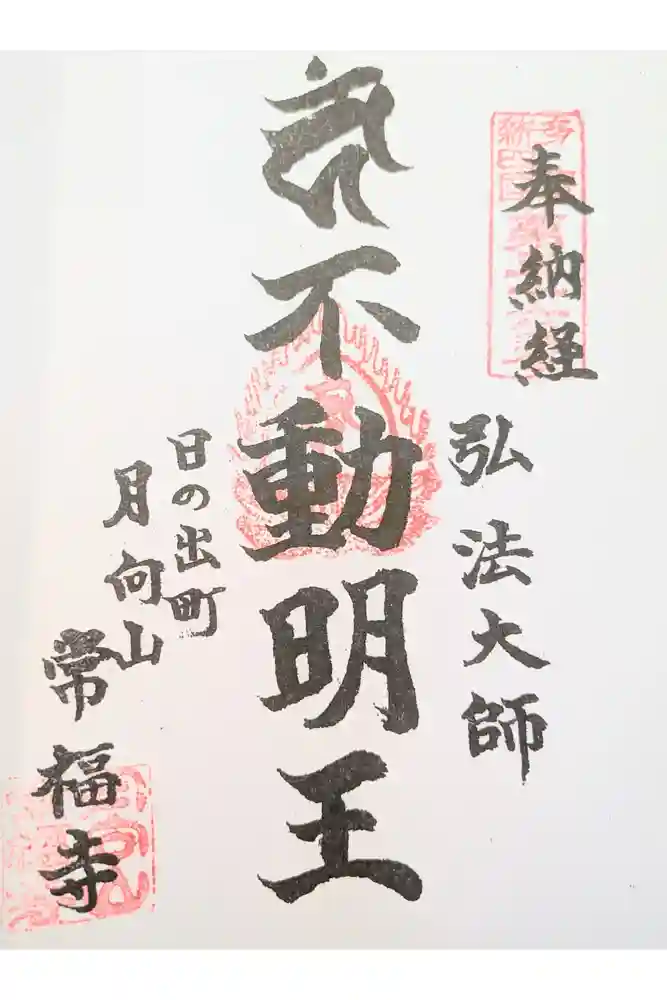 奉納経
弘法大師
不動明王
日の出町
月向山
常福寺